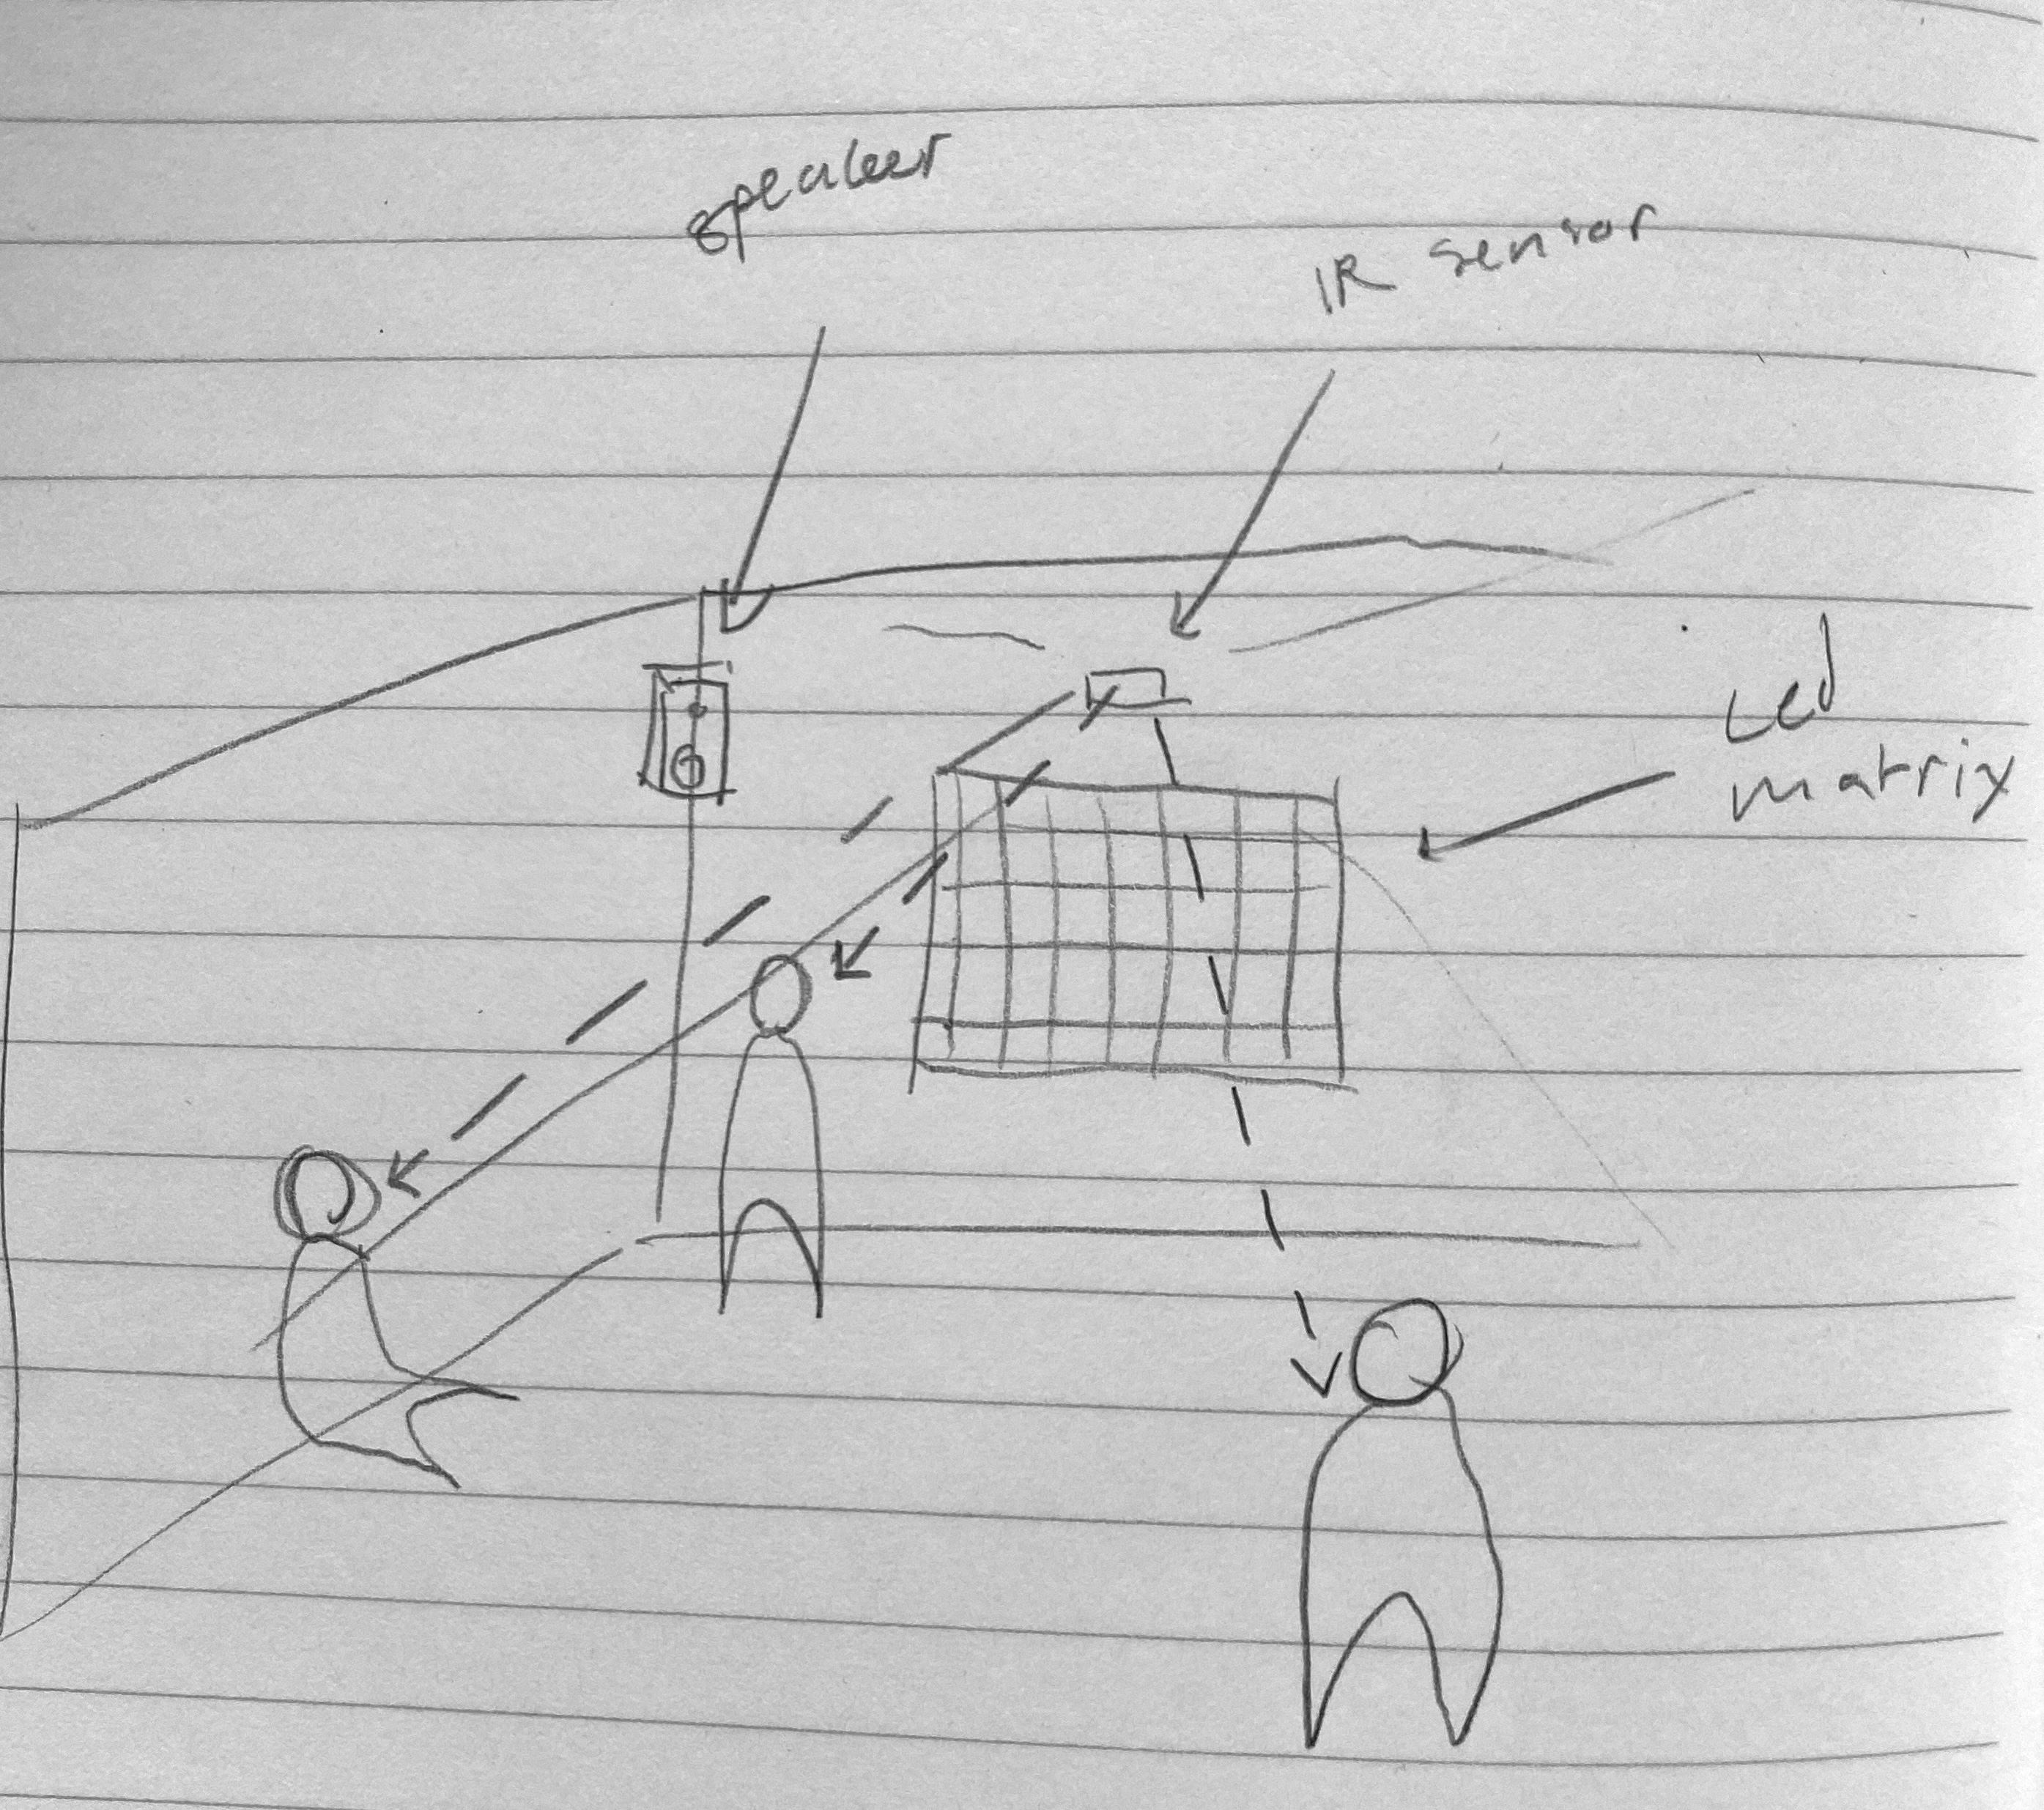 speaker
IR sensor
Led
matrix